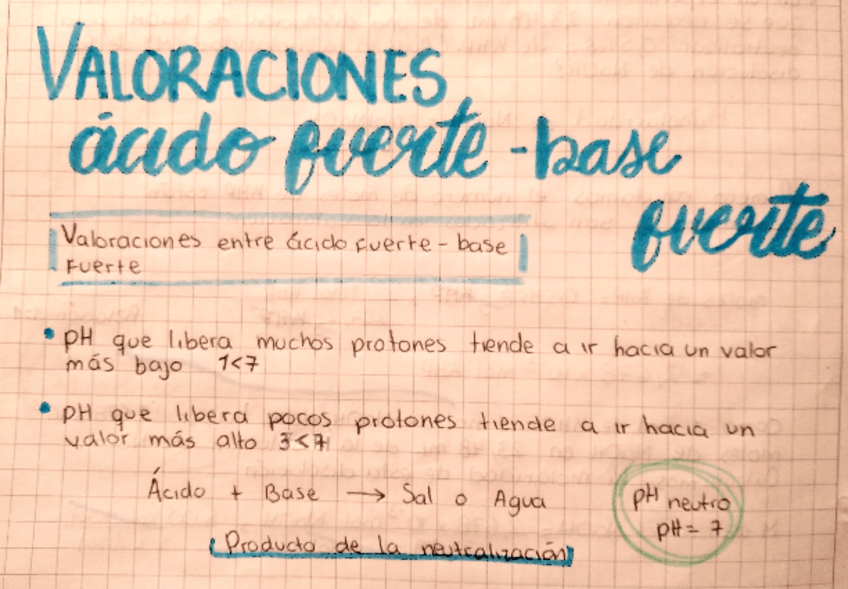 VALORACIONES
ácido fuerte - base
fuerte
Valoraciones entre ácido fuerte - base
Fuerte
• pH que libera muchos protones tiende a ir hacia un valor
más bajo 1<7
• pH que libera pocos protones tiende a ir hacia un
valor más alto 3<7
Ácido + Base → Sal o Agua
pH neutro
pH = 7
Producto de la neutralización